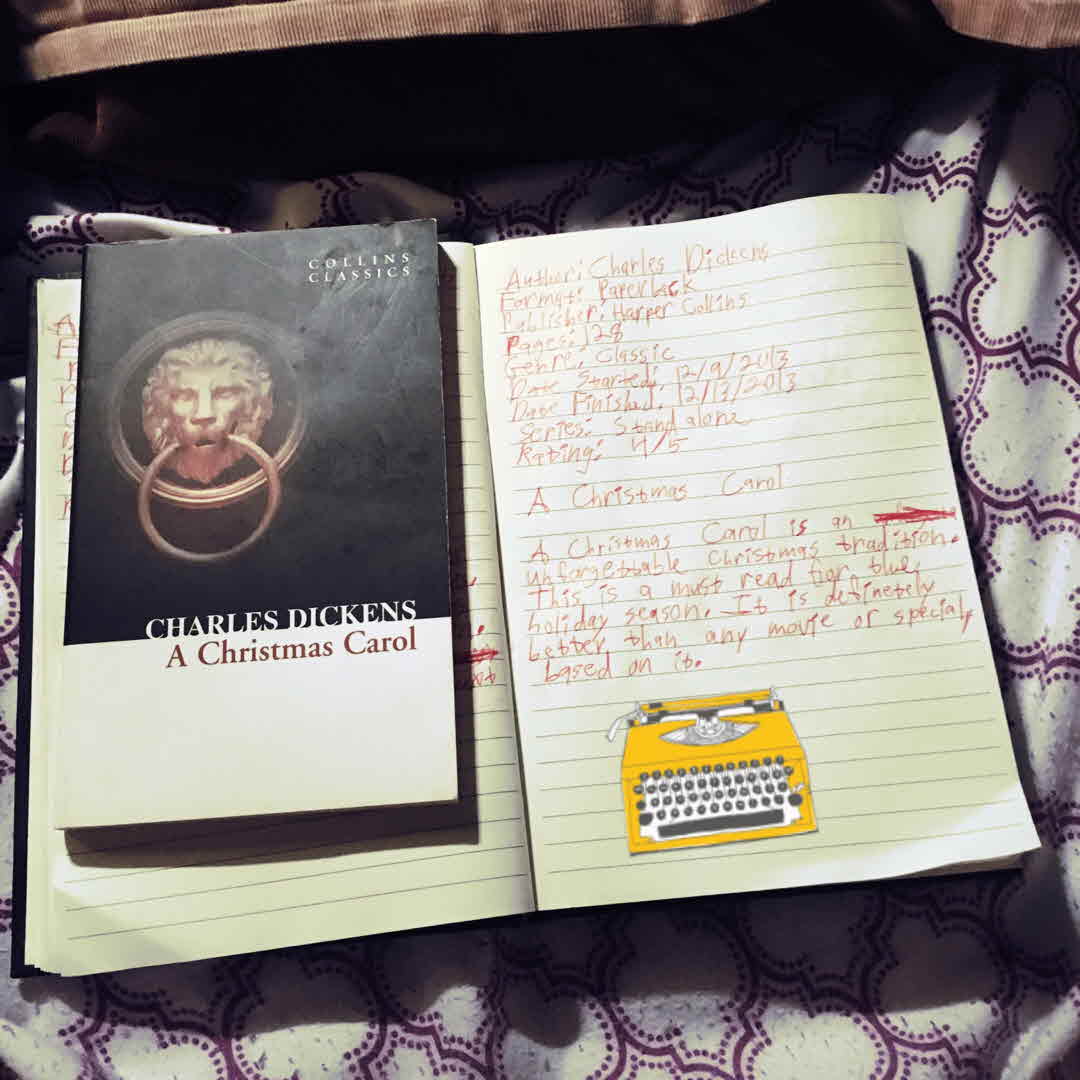 COLLINS
CLASSICS
CHARLES DICKENS
A Christmas Carol
Author: Charles Dickens
Format: Paperback
Publisher: Harper Collins
Pages: 128
Genre: Classic
Date Started: 12/9/2013
Date Finished: 2013
Series: Standalone
Rating: 4/5
A Christmas Carol
A Christmas Carol is an
unforgettable Christmas tradition.
This is a must read for the
holiday season. It is definetely
better than any movie or special
based on it.